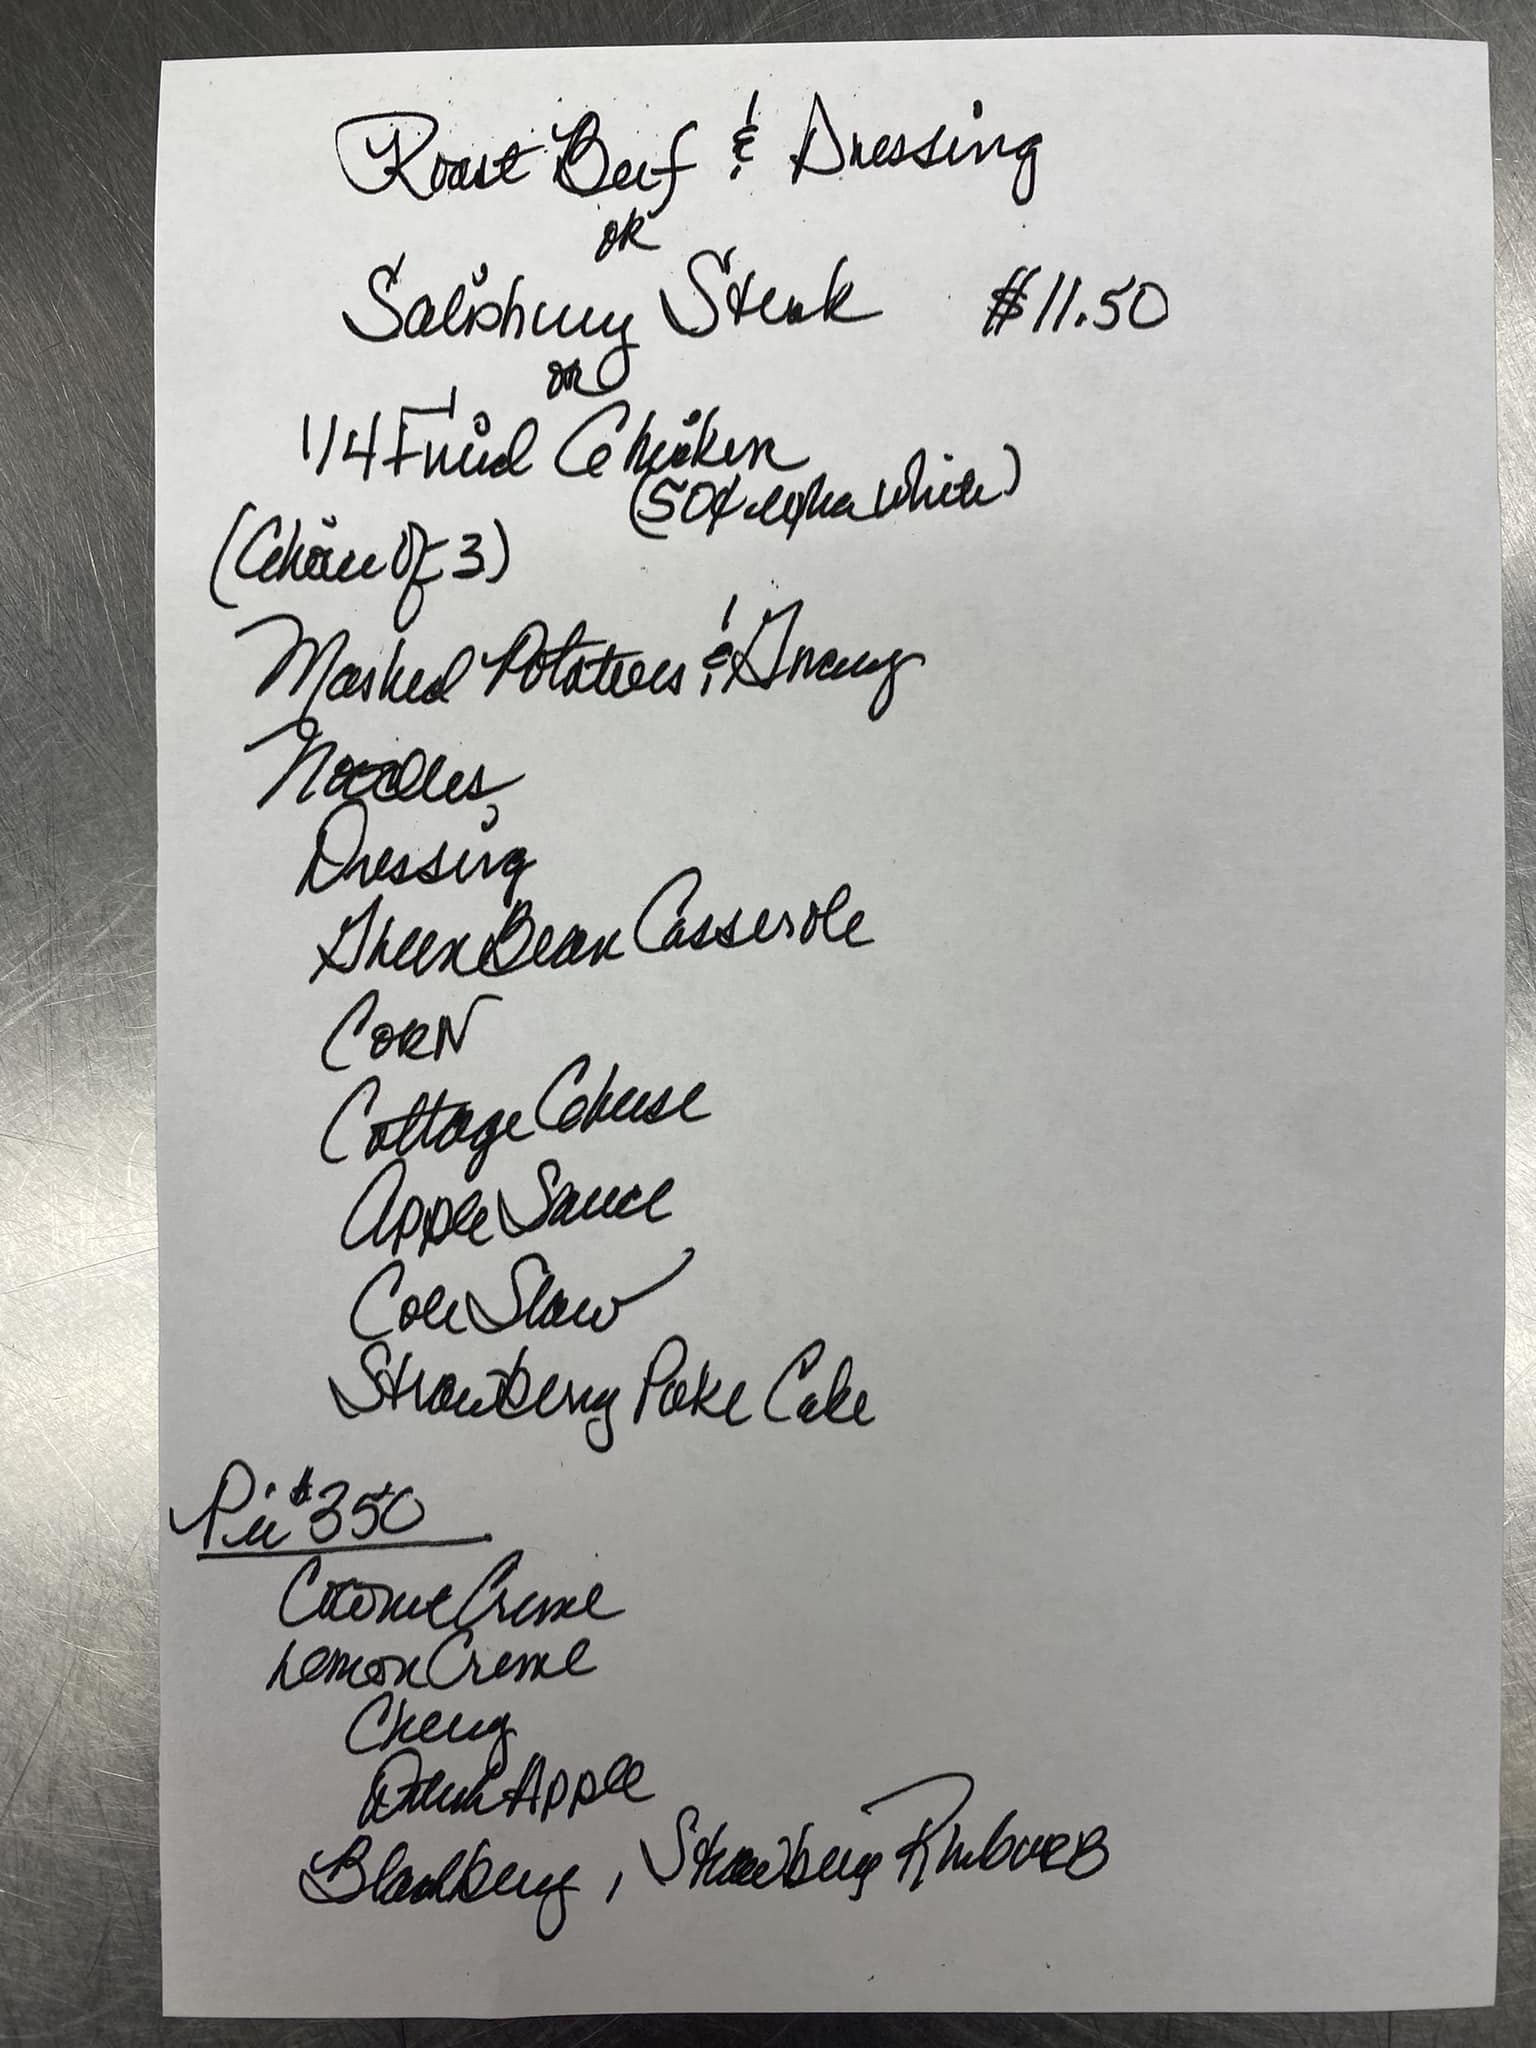 Roast Beef & Dressing
or
Salisbury Steak $11.50
or
1/4 Fried Chicken
(50¢ extra white)
(Choice of 3)
Mashed Potatoes & Gravy
Noodles
Dressing
Green Bean Casserole
Corn
Cottage Cheese
Apple Sauce
Cole Slaw
Strawberry Poke Cake
Pie $350
Coconut Creme
Lemon Creme
Cherry
Dutch Apple
Blackberry, Strawberry Rhubarb